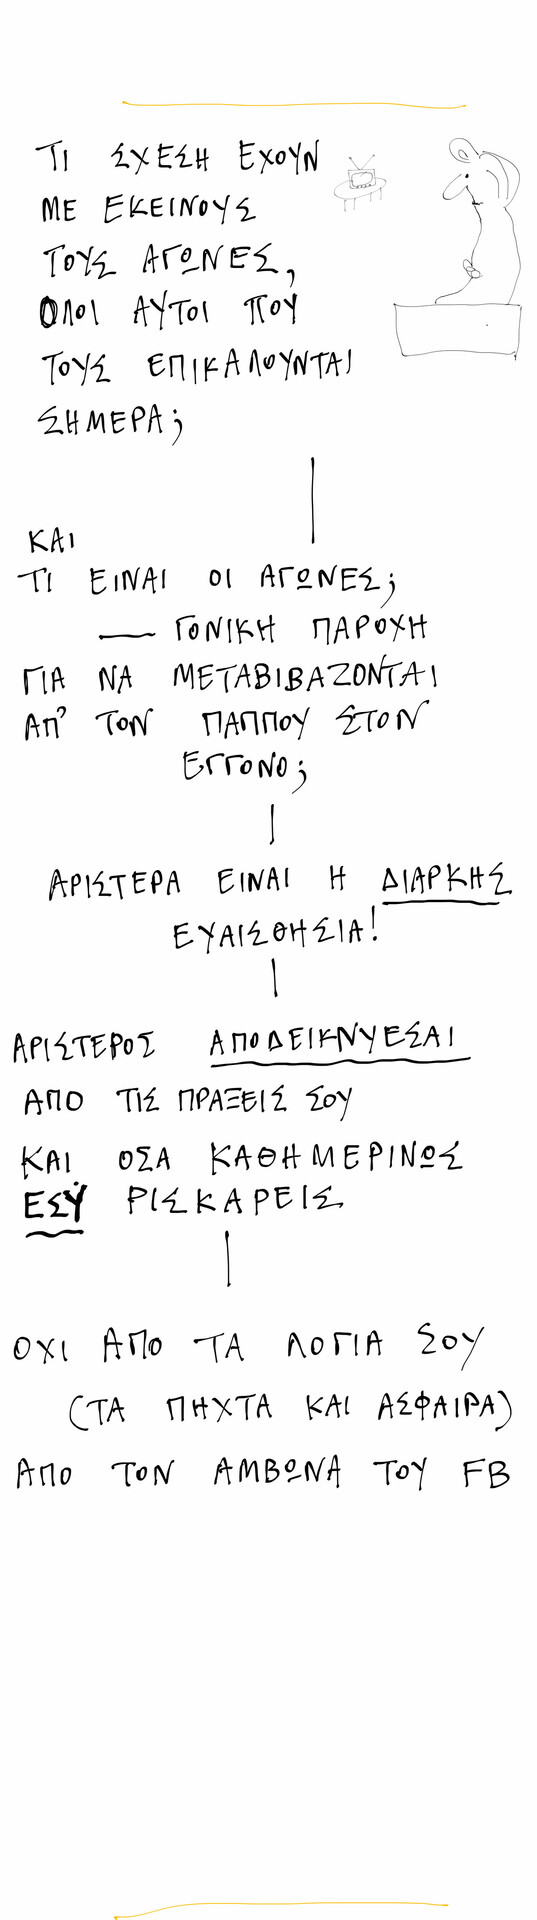 ΤΙ ΣΧΕΣΗ ΕΧΟΥΝ
ΜΕ ΕΚΕΙΝΟΥΣ
ΤΟΥΣ ΑΓΩΝΕΣ,
ΟΛΟΙ ΑΥΤΟΙ ΠΟΥ
ΤΟΥΣ ΕΠΙΚΑΛΟΥΝΤΑΙ
ΣΗΜΕΡΑ;
ΚΑΙ
ΤΙ ΕΙΝΑΙ ΟΙ ΑΓΩΝΕΣ;
— ΓΟΝΙΚΗ ΠΑΡΟΧΗ
ΓΙΑ ΝΑ ΜΕΤΑΒΙΒΑΖΟΝΤΑΙ
ΑΠ' ΤΟΝ ΠΑΠΠΟΥ ΣΤΟΝ
ΕΓΓΟΝΟ;
ΑΡΙΣΤΕΡΑ ΕΙΝΑΙ Η ΔΙΑΡΚΗΣ
ΕΥΑΙΣΘΗΣΙΑ!
ΑΡΙΣΤΕΡΟΣ ΑΠΟΔΕΙΚΝΥΕΣΑΙ
ΑΠΟ ΤΙΣ ΠΡΑΞΕΙΣ ΣΟΥ
ΚΑΙ ΟΣΑ ΚΑΘΗΜΕΡΙΝΩΣ
ΕΣΥ ΡΙΣΚΑΡΕΙΣ
ΟΧΙ ΑΠΟ ΤΑ ΛΟΓΙΑ ΣΟΥ
(ΤΑ ΠΗΧΤΑ ΚΑΙ ΑΣΦΑΙΡΑ)
ΑΠΟ ΤΟΝ ΑΜΒΩΝΑ ΤΟΥ FB